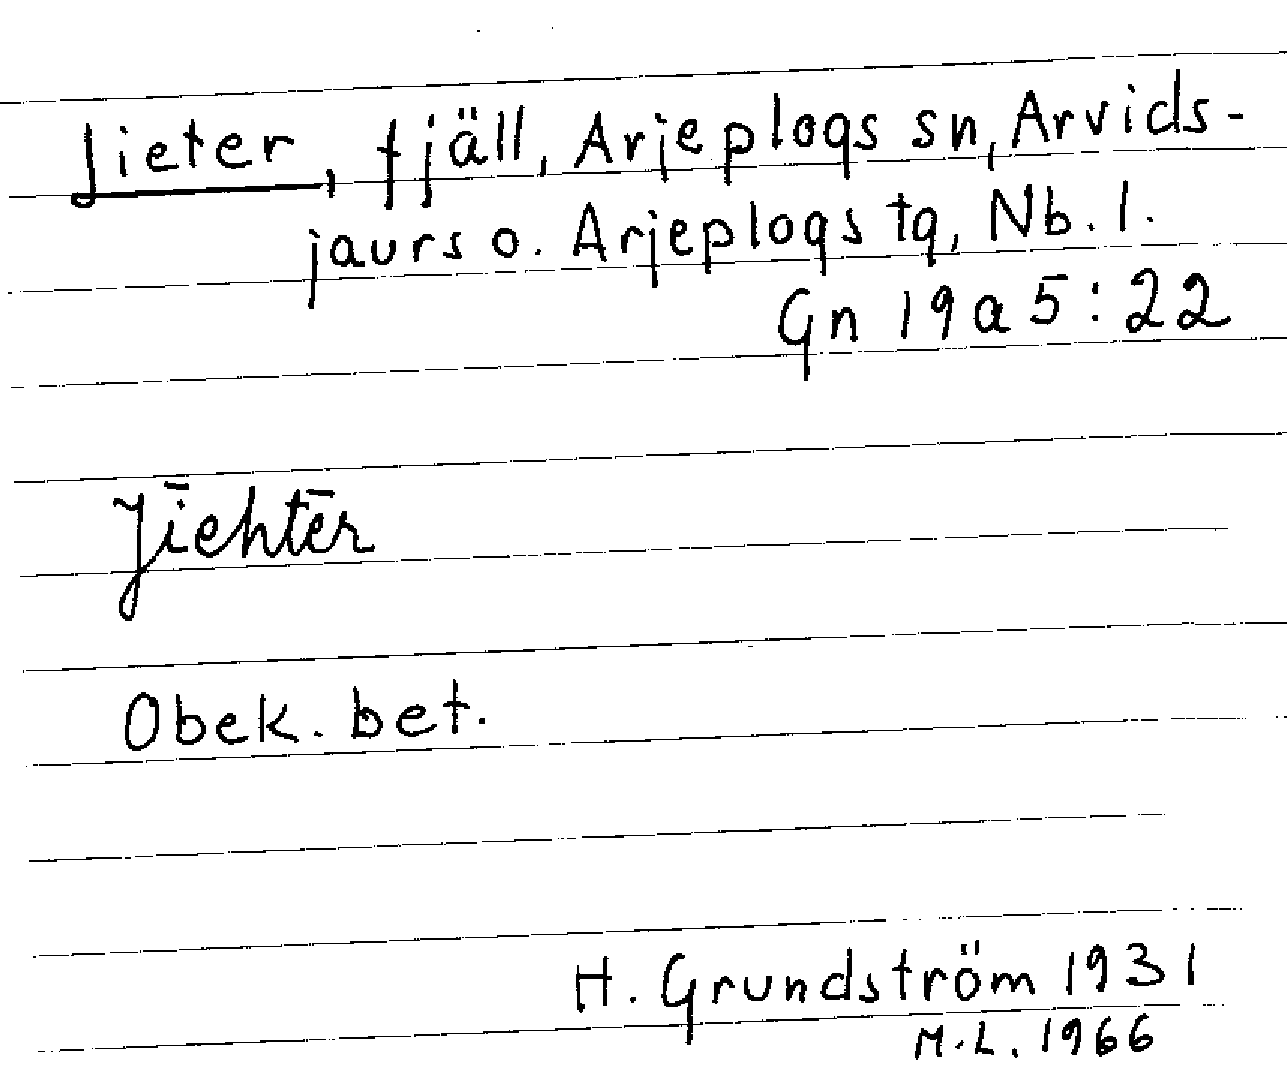 Jieter, fjäll, Arjeplogs sn, Arvids-
jaurs o. Arjeplogs tg, Nb. l.
Gn 19 a 5:22
Jīehtēr
Obek. bet.
H. Grundström 1931
M.L. 1966